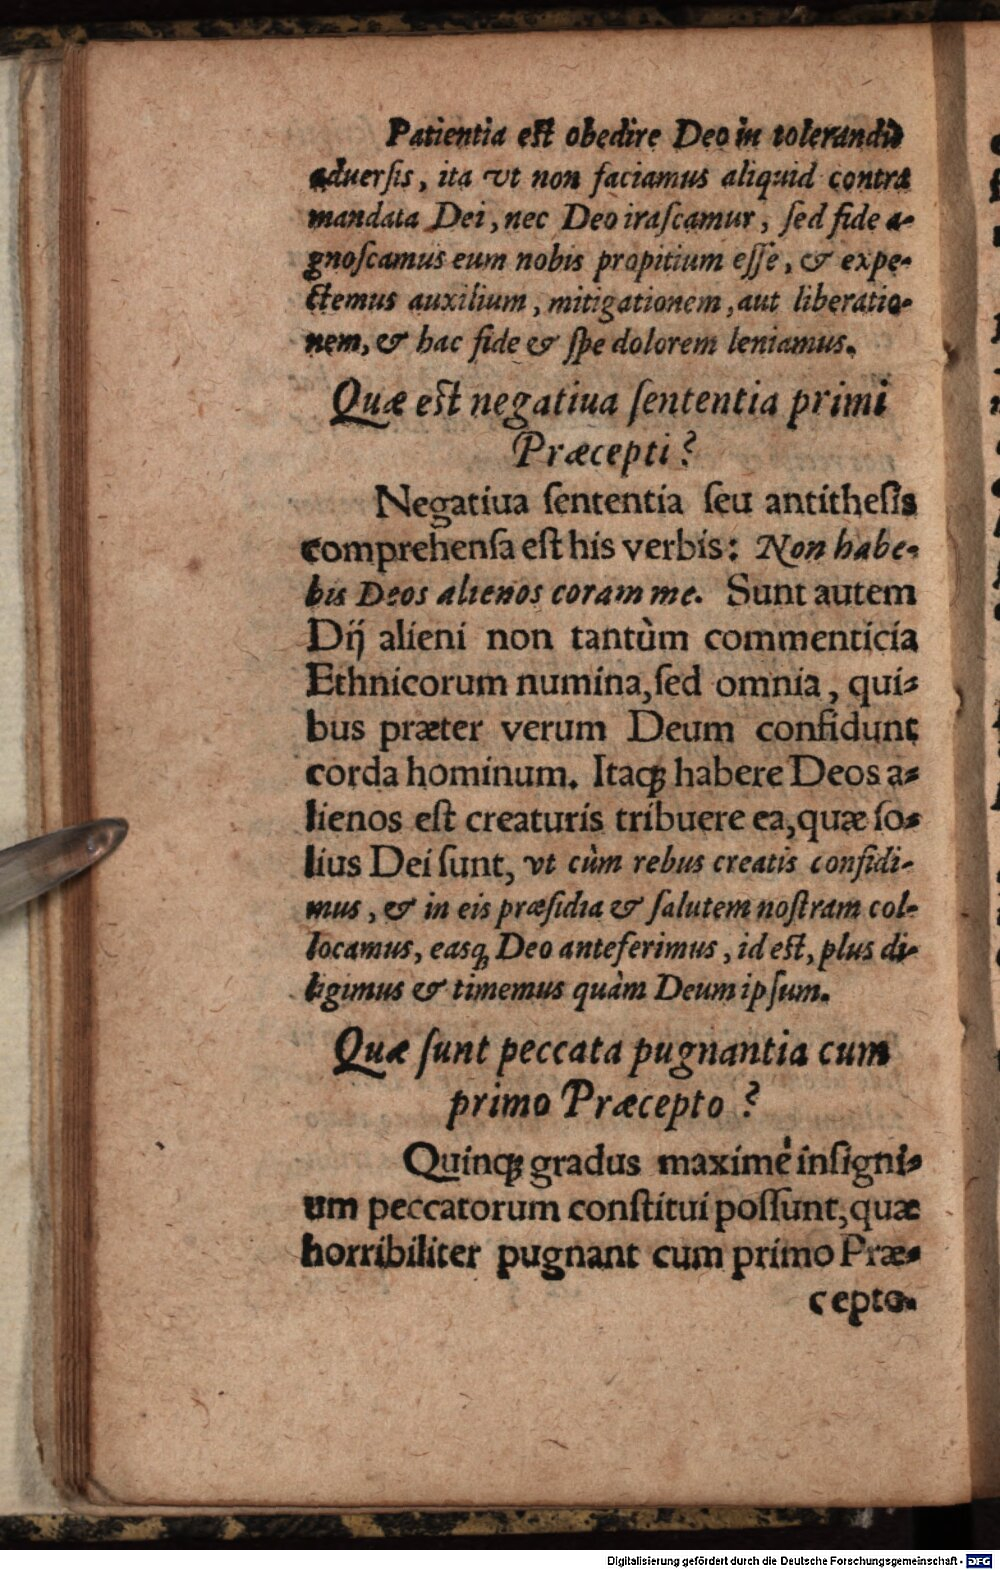 Patientia est obedire Deo in tolerandis
aduersis, ita vt non faciamus aliquid contra
mandata Dei, nec Deo irascamur, sed fide a-
gnoscamus eum nobis propitium esse, & expe-
ctemus auxilium, mitigationem, aut liberatio-
nem, & hac fide & spe dolorem leniamus.
Quæ est negatiua sententia primi
Præcepti?
Negatiua sententia seu antithesis
comprehensa est his verbis: Non habe-
bis Deos alienos coram me. Sunt autem
Dij alieni non tantùm commenticia
Ethnicorum numina, sed omnia, qui-
bus præter verum Deum confidunt
corda hominum. Itaq; habere Deos a-
lienos est creaturis tribuere ea, quæ so-
lius Dei sunt, vt cùm rebus creatis confidi-
mus, & in eis præsidia & salutem nostram col-
locamus, easq; Deo anteferimus, id est, plus di-
ligimus & timemus quàm Deum ipsum.
Quæ sunt peccata pugnantia cum
primo Præcepto?
Quinq; gradus maximè insigni-
um peccatorum constitui possunt, quæ
horribiliter pugnant cum primo Præ-
cepto.
Digitalisierung gefördert durch die Deutsche Forschungsgemeinschaft - DFG